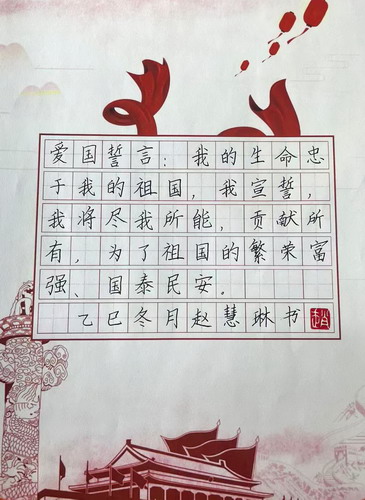 爱国誓言：我的生命忠
于我的祖国，我宣誓，
我将尽我所能，贡献所
有，为了祖国的繁荣富
强、国泰民安．
乙巳冬月赵慧琳书
趙